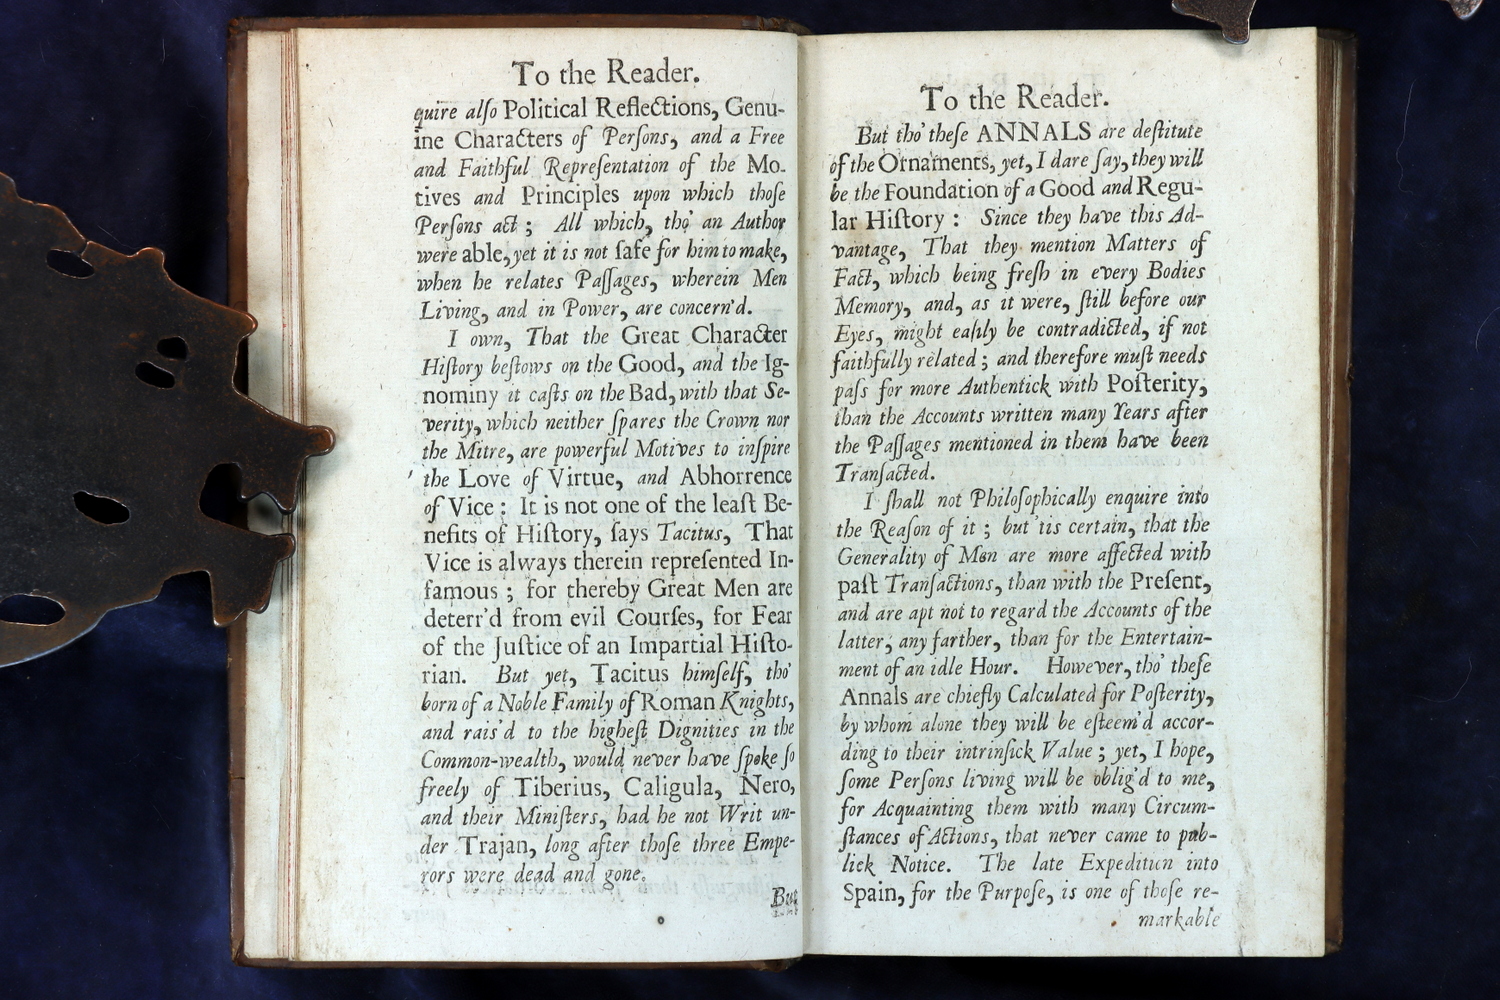 To the Reader.
quire alſo Political Reflections, Genu-
ine Characters of Perſons, and a Free
and Faithful Repreſentation of the Mo-
tives and Principles upon which thoſe
Perſons act ; All which, tho' an Author
were able, yet it is not ſafe for him to make,
when he relates Paſſages, wherein Men
Living, and in Power, are concern'd.
I own, That the Great Character
Hiſtory beſtows on the Good, and the Ig-
nominy it caſts on the Bad, with that Se-
verity, which neither ſpares the Crown nor
the Mitre, are powerful Motives to inſpire
the Love of Virtue, and Abhorrence
of Vice : It is not one of the leaſt Be-
nefits of Hiſtory, ſays Tacitus, That
Vice is always therein repreſented In-
famous ; for thereby Great Men are
deterr'd from evil Courſes, for Fear
of the Juſtice of an Impartial Hiſto-
rian. But yet, Tacitus himſelf, tho'
born of a Noble Family of Roman Knights,
and rais'd to the higheſt Dignities in the
Common-wealth, would never have ſpoke ſo
freely of Tiberius, Caligula, Nero,
and their Miniſters, had he not Writ un-
der Trajan, long after thoſe three Empe-
rors were dead and gone.
But
To the Reader.
But tho' theſe ANNALS are deſtitute
of the Ornaments, yet, I dare ſay, they will
be the Foundation of a Good and Regu-
lar Hiſtory : Since they have this Ad-
vantage, That they mention Matters of
Fact, which being freſh in every Bodies
Memory, and, as it were, ſtill before our
Eyes, might eaſily be contradicted, if not
faithfully related ; and therefore muſt needs
paſs for more Authentick with Poſterity,
than the Accounts written many Years after
the Paſſages mentioned in them have been
Tranſacted.
I ſhall not Philoſophically enquire into
the Reaſon of it ; but 'tis certain, that the
Generality of Men are more affected with
paſt Tranſactions, than with the Preſent,
and are apt not to regard the Accounts of the
latter, any farther, than for the Entertain-
ment of an idle Hour. However, tho' theſe
Annals are chiefly Calculated for Poſterity,
by whom alone they will be eſteem'd accor-
ding to their intrinſick Value ; yet, I hope,
ſome Perſons living will be oblig'd to me,
for Acquainting them with many Circum-
ſtances of Actions, that never came to pub-
lick Notice. The late Expedition into
Spain, for the Purpoſe, is one of thoſe re-
markable